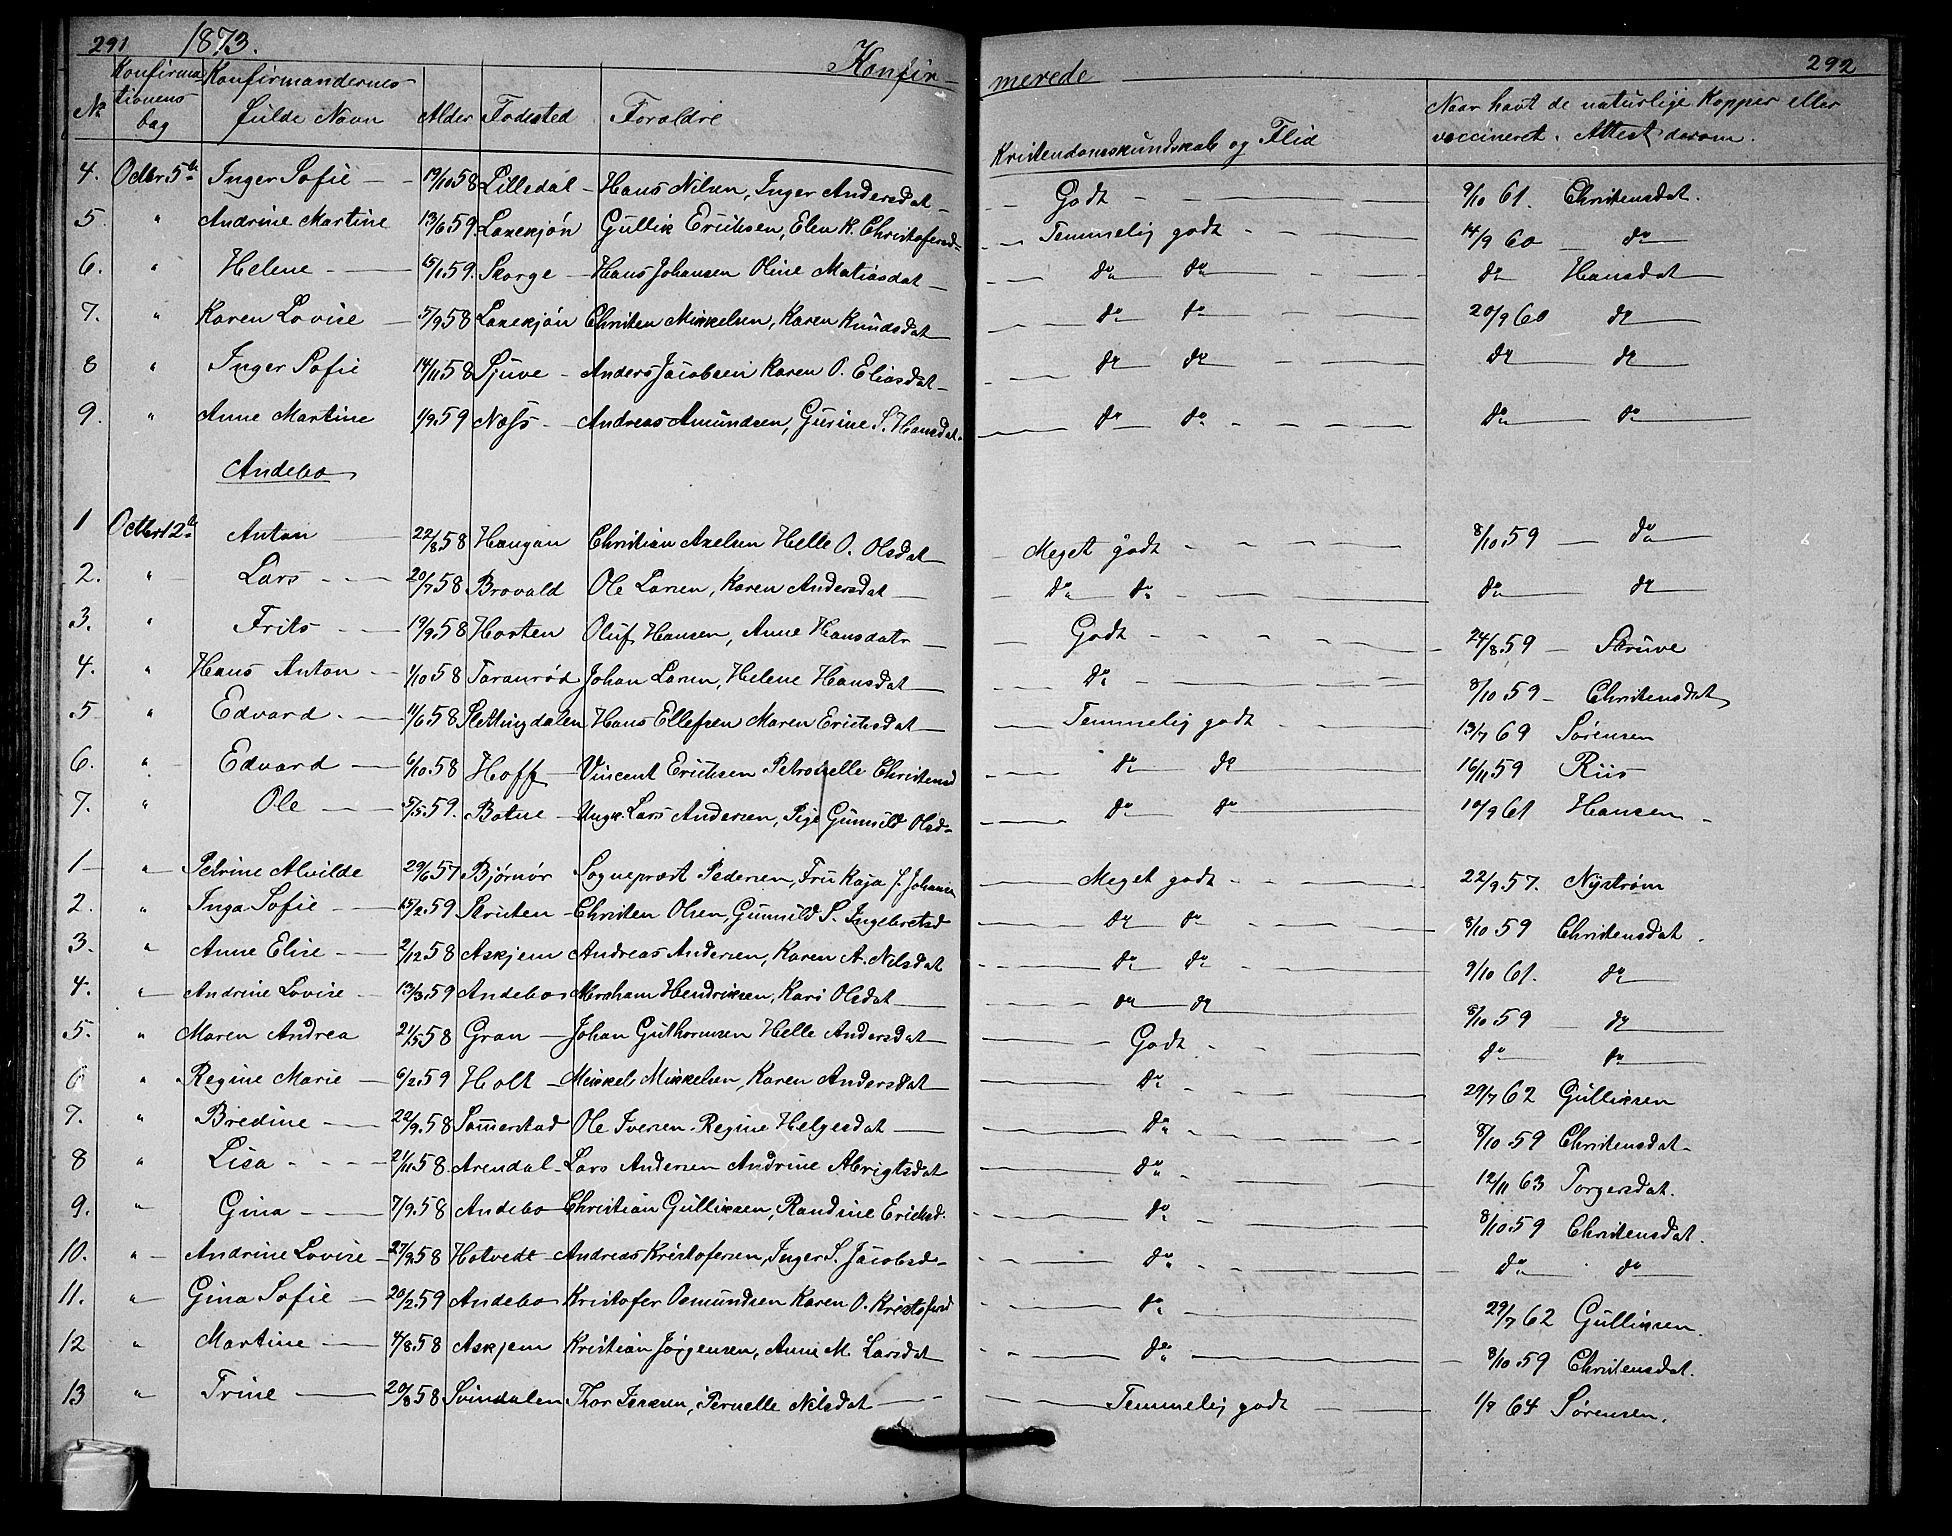 291 1873. Konfir- merede 292
No Konfirma-tionens Dag Konfirmandernes fulde Navn Alder Fødested Forældre Kristendomskundskab og Flid Naar havt de naturlige Kopper eller vaccineret. Attest derom.
4. Octbr 5te Inger Sofie 19/10 58 Lilledal Hans Nilsen, Inger Andersdat Godt 9/10 61. Christensdat.
5. " Andrine Martine 13/6 59 Laxesjøn Gullik Erichsen, Elen K. Christofersd Temmelig godt 14/9 60 do
6. " Helene 15/1 59. Skorge Hans Johansen Oline Matiasdat do do do Hansdat
7. " Karen Lovise 5/9 58 Laxesjøn Christen Mikkelsen, Karen Knudsdat do do 20/9 60 do
8 " Inger Sofie 14/11 58 Sjuve Anders Jacobsen Karen O. Eliasdat do do do do
9. " Anne Martine 1/9 59 Næss Andreas Amundsen, Gurine S. Hansdat. do do do do
Andebo
1 Octbr 12te Anton 22/8 58 Haugan Christian Axelsen Helle O. Olsdat Meget godt 8/10 59 do
2. " Lars 20/7 58 Brovald Ole Larsen, Karen Andersdat do do do do
3. " Frits 19/9 58 Horten Oluf Hansen, Anne Hansdatr Godt 24/8 59 Struve
4. " Hans Anton 1/10 58 Taranrød Johan Larsen, Helene Hansdat do 8/10 59 Christensdat
5 " Edvard 11/6 58 Slettingdalen Hans Ellefsen Maren Erichsdat Temmelig godt 13/7 69 Sørensen
6. " Edvard 6/10 58 Hoff Vincent Erichsen Petronelle Christensd do do 16/11 59 Riis
7. " Ole 5/5 59. Botne Ungk. Lars Andersen, Pige Gunnild Olsd do do 10/9 61 Hansen
1 " Petrine Alvilde 29/6 57 Bjørnør Sogneprest Pedersen, Fru Kaja J. Johansen Meget godt 22/9 57. Nystrøm
2. " Inga Sofie 15/2 59 Skristen Christen Olsen, Gunnild S. Ingebretsd do do 8/10 59 Christensdat.
3. " Anne Elise 2/12 58 Askjem Andreas Andersen, Karen A. Nilsdat do do 9/10 61. do
4. " Andrine Lovise 13/3 59 Andebo Abraham Hendriksen, Kari Olsdat do do 8/10 59 do
5. " Maren Andrea 21/5 58 Gran Johan Guthormsen Helle Andersdat Godt do do
6 " Regine Marie 6/2 59 Holt Mikkel Mikkelsen, Karen Andersdat do 29/7 62 Gulliksen
7. " Bredine 22/9 58 Sommerstad Ole Iversen Regine Helgesdat do 8/10 59 Christensdat
8 " Lisa 21/11 58 Arendal Lars Andersen Andrine Abrigtsdat do 12/11 63 Torgersdat.
9. " Gina 7/9 58 Andebo Christian Gulliksen, Randine Erichsd. do 8/10 59 Christensdat.
10. " Andrine Lovise 27/9 58 Hotvedt Andreas Kristofersen, Inger S. Jacobsd do do do
11. " Gina Sofie 20/2 59 Andebo Kristofer Osmundsen Karen O. Kristofersd do 29/7 62 Gulliksen.
12 " Martine 4/8 58 Askjem Kristian Jørgensen, Anne M. Larsdat do 8/10 59 Christensdat.
13 " Trine 20/8 58 Svindalen Thor Isaksen, Pernelle Nilsdat Temmelig godt 1/9 64 Sørensen.